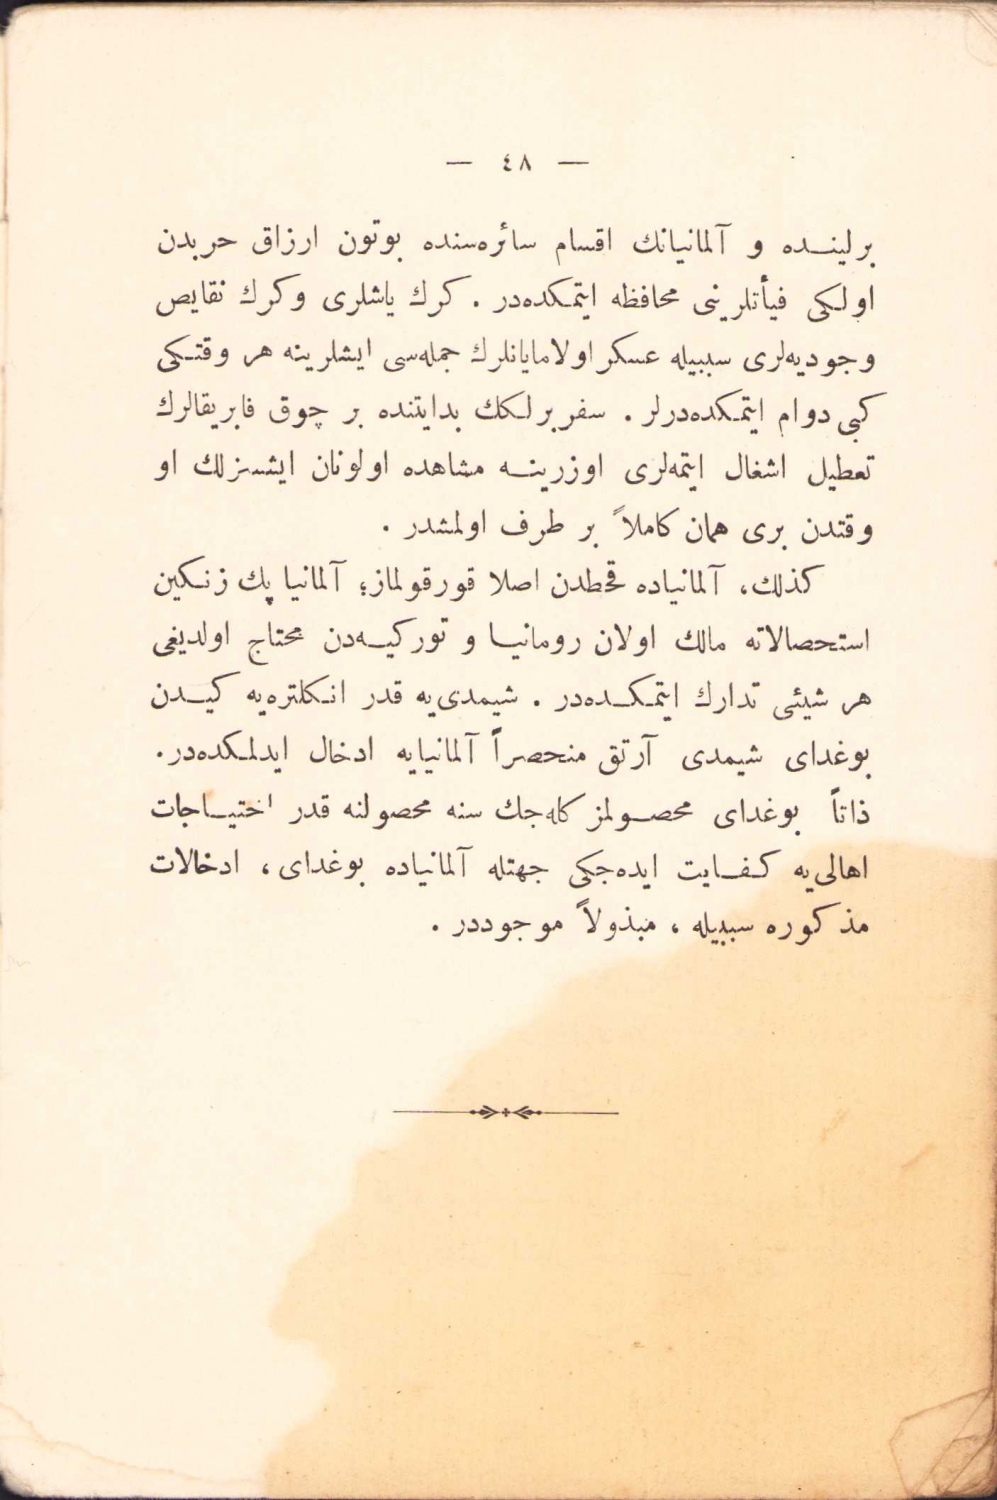 — ٤٨ —
برلینده و آلمانیانك اقسام سائره‌سنده بوتون ارزاق حربدن
اولكی فیأتلرینی محافظه ایتمكده‌در . كرك یاشلری وكرك نقایص
وجودیه‌لری سببیله عسكر اولامایانلرك جمله‌سی ایشلرینه هر وقتكی
كبی دوام ایتمكده‌درلر . سفربرلكك بدایتنده بر چوق فابریقالرك
تعطیل اشغال ایتمه‌لری اوزرینه مشاهده اولونان ایشسزلك او
وقتدن بری همان كاملاً بر طرف اولمشدر .
كذلك، آلمانیاده قحطدن اصلا قورقولماز؛ آلمانیا پك زنكین
استحصالاته مالك اولان رومانیا و توركیه‌دن محتاج اولدیغی
هر شیئی تدارك ایتمكده‌در . شیمدی‌یه قدر انكلتره‌یه كیدن
بوغدای شیمدی آرتق منحصراً آلمانیایه ادخال ایدلمكده‌در.
ذاتاً بوغدای محصولمز كله‌جك سنه محصولنه قدر احتیاجات
اهالی‌یه كفایت ایده‌جكی جهتله آلمانیاده بوغدای، ادخالات
مذكوره سببیله ، مبذولاً موجوددر .